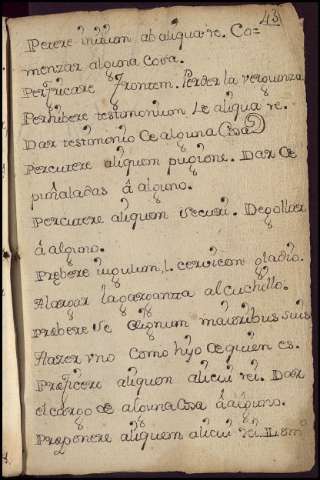 43
Petere initium ab aliqua re. Co=
menzar alguna cosa.
Perfricare frontem. Perder la verguenza
Perhibere testimonium de aliqua re.
Dar testimonio de alguna Cosa
Percutere aliquem pugione. Dar de
puñaladas á alguno.
Percutere aliquem securi. Degollar
á alguno.
Prebere iugulum, l. cervicem gladio.
Alargar la garganta al cuchillo.
Prebere se dignum maioribus suis
Hazer vno como hijo de quien es.
Preficere aliquem alicui rei. Dar
el cargo de alguna Cosa á alguno.
Proponere aliquem alicui rei.